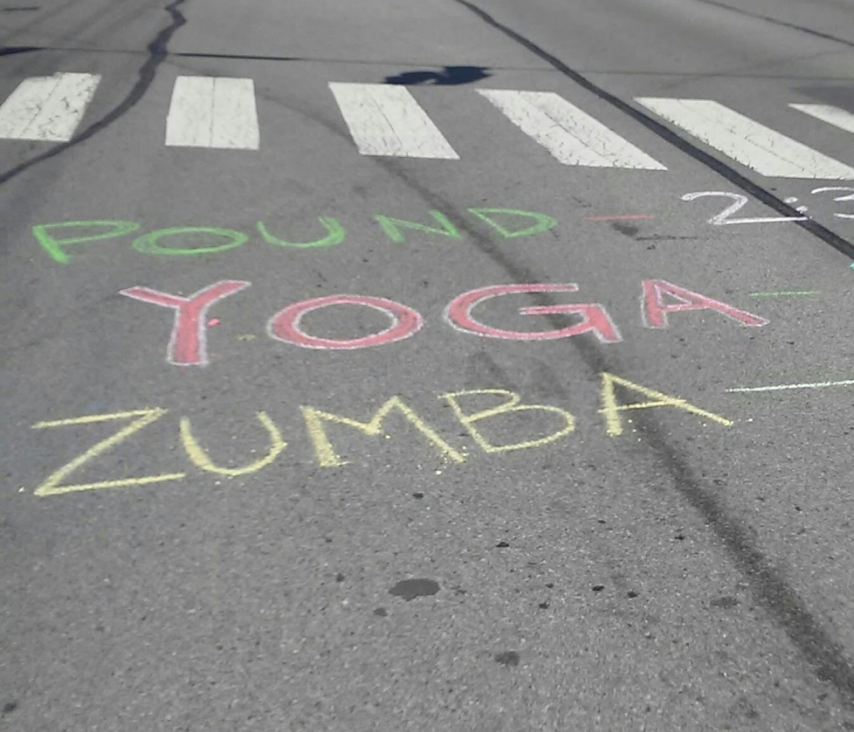 POUND - 2:3
YOGA -
ZUMBA -